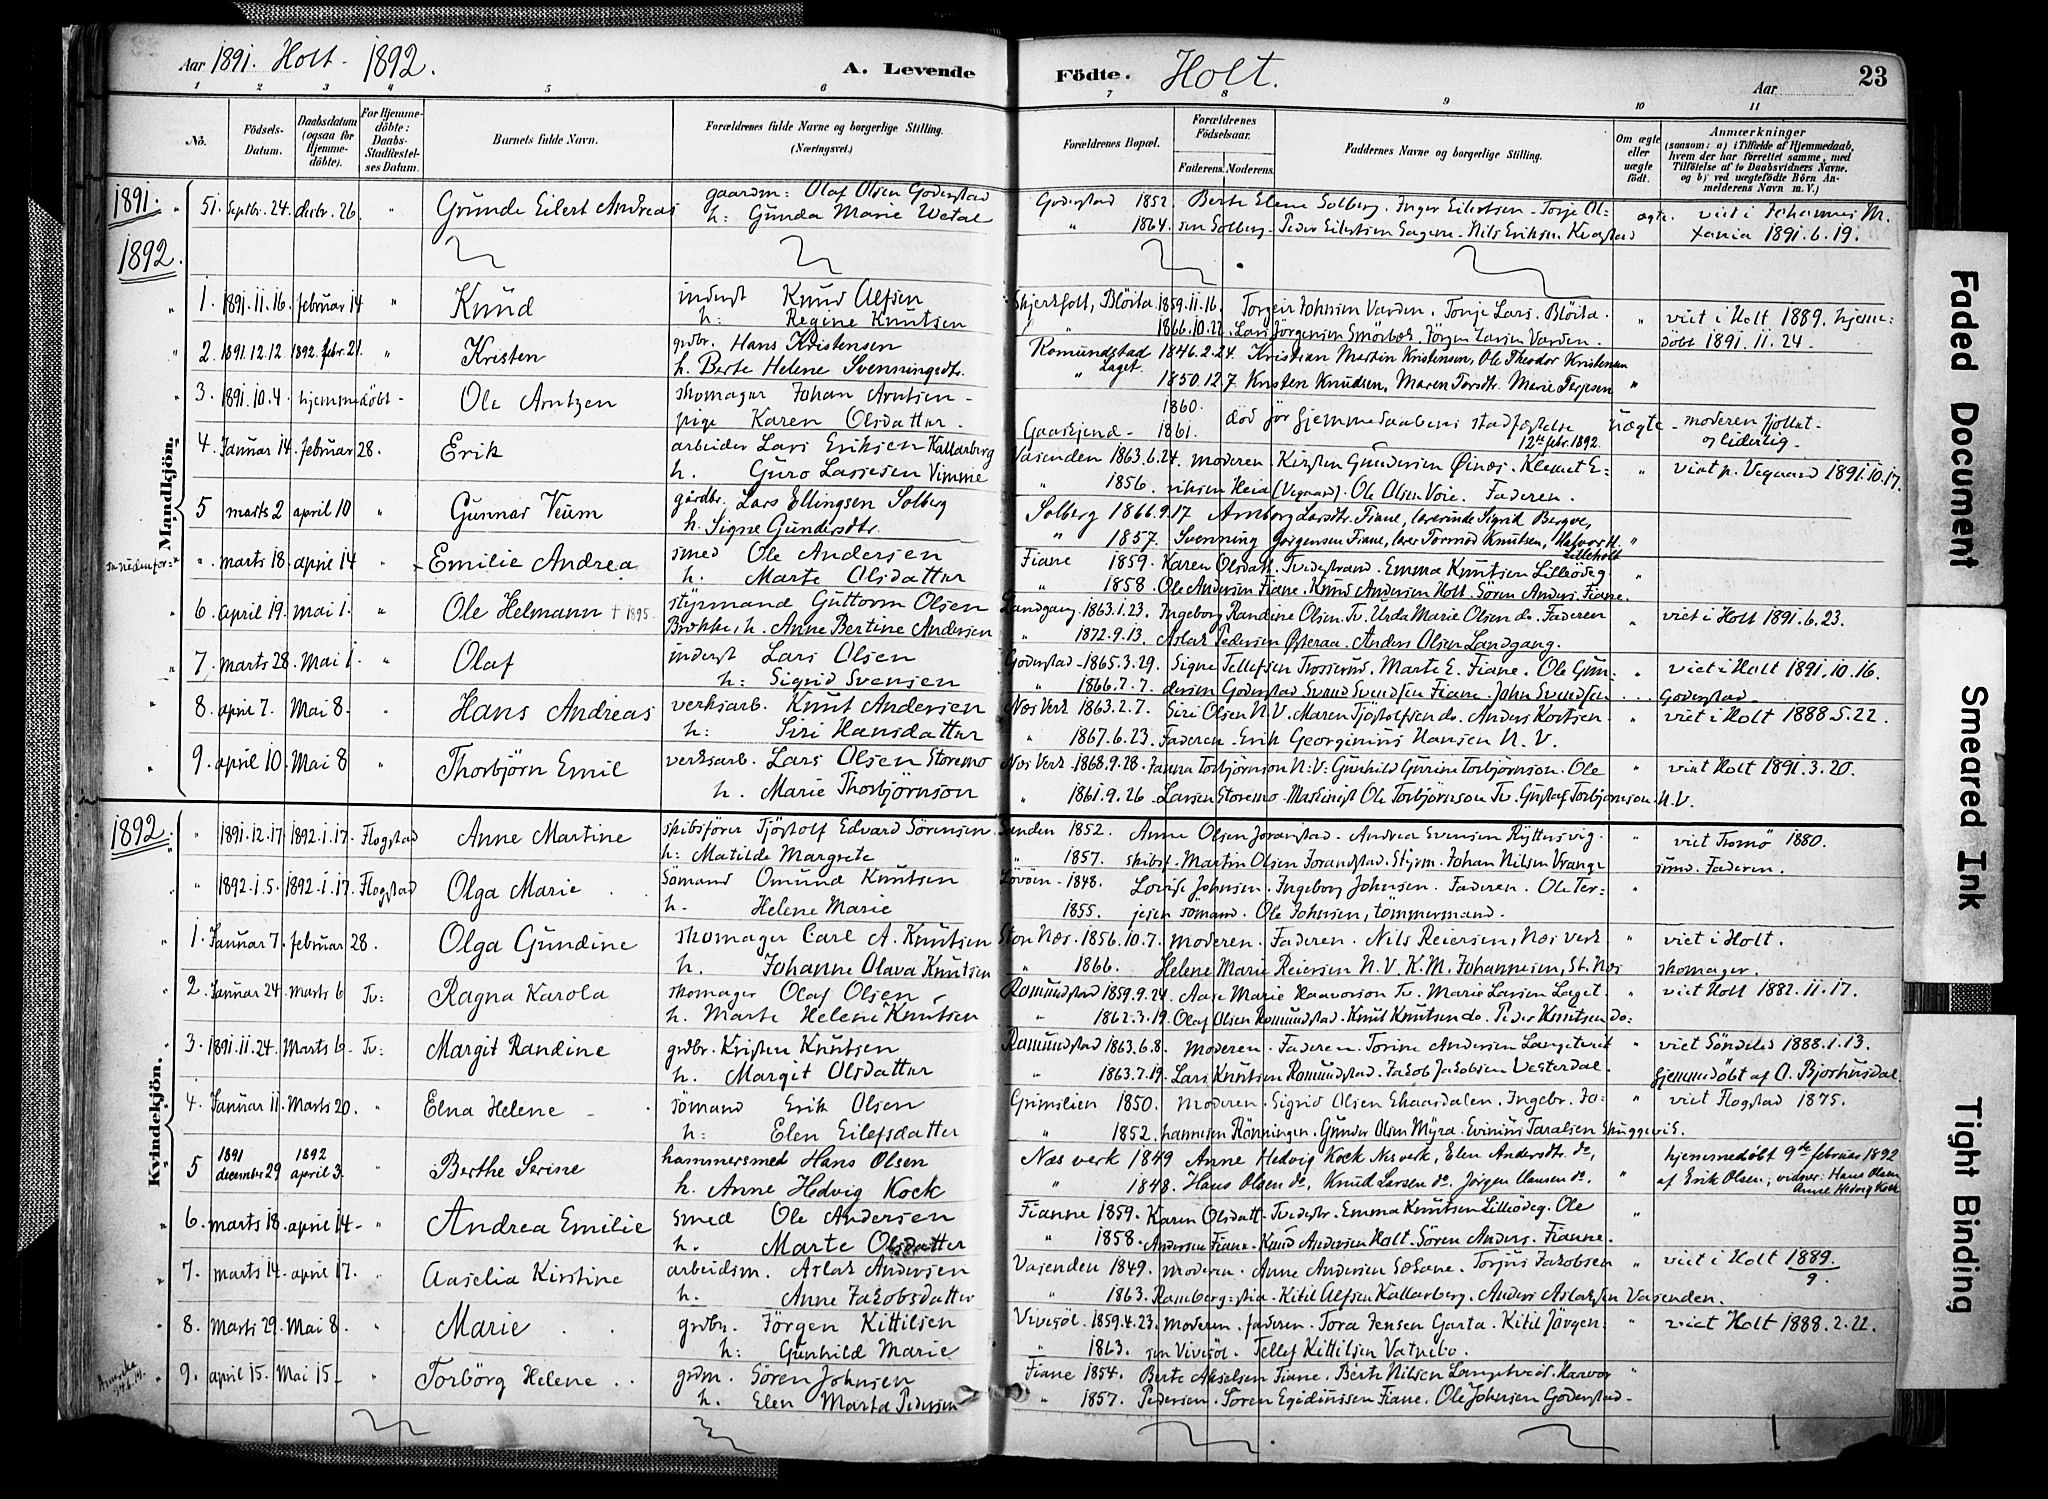 Aar 1891. Holt - 1892. A. Levende Födte. Holt. Aar 23
1 2 3 4 5 6 7 8 9 10 11
No. Födsels-Datum. Daabsdatum (ogsaa for Hjemme-döbte). For Hjemme-döbte: Daabs-Stadfæstel-ses Datum. Barnets fulde Navn. Forældrenes fulde Navne og borgerlige Stilling. (Næringsvei.) Forældrenes Bopæl. Forældrenes Födselsaar. Faderens. Moderens. Faddernes Navne og borgerlige Stilling. Om ægte eller uægte födt. Anmærkninger (saasom: a) i Tilfælde af Hjemmedaab, hvem der har forrettet samme, med Tilföielse af to Daabsvidners Navne. og b) ved uægtefödte Börn An-melderens Navn m. V.)
1891. " 51. Septbr. 24. decbr. 26. " Grunde Eilert Andreas gaardm: Olaf Olsen Goderstad Goderstad 1852. Berte Elene Solberg. Inger Eilertsen. Torje Ol= ægte. viet i Johannes M.
h: Gunda Marie Wetal " 1864. sen Solberg. Peder Eilertsen Sagene. Nils Eriksen Kvastad xania 1891.6.19.
1892.
Mandkjön.
" 1. 1891.11.16. februar 14 " Knud inderst Knud Alfsen Skjerkholt, Blöita 1859.11.16. Torgeir Johnsen Varden. Tonje Lars. Blöita. " viet i Holt 1889. hjeme=
h: Regine Knutsen " " 1866.10.22. Lars Jörgensen Smörbek. Jörgen Larsen Varden. döbt 1891.11.24.
" 2. 1891.12.12 1892. febr. 21. " Kristen grdbr. Hans Kristensen Romundstad 1846.2.24. Kristian Martin Kristensen, Ole Theodor Kristensen
h. Berte Helene Svenningsdtr. " Laget. 1850.12.7. Kristen Knudsen, Maren Torsdtr. Marie Terjesen "
" 3. 1891.10.4. hjemmedöbt - Ole Arntzen skomager Johan Arntsen - 1860. död för hjemmedaabens stadfæstelse uægte - moderen fjollet -
pige Karen Olsdatter. Gaaskjend - 1861. 12te febr. 1892. og liderlig -
4. Januar 14. februar 28. Erik arbeider Lars Eriksen Kallarberg Vasenden 1863.6.24. moderen. Kirsten Gundersen Øinæs. Klemet E= " viet p. Vegaard 1891.10.17.
h. Guro Lassesen Vimme " 1856. riksen Heia (Vegaard). Ole Olsen Voie. Faderen.
5 marts 2 april 10 " Gunnar Veum gårdbr. Lars Ellingsen Solberg Solberg 1866.9.17 Amborg Larsdtr. Fiane, lærerinde Sigrid Bergve,
h. Signe Gundersdtr. " 1857. Svenning Jörgensen Fiane, lærer Tormod Knutsen, Halvor H. Lilleholt "
se nedenfor " marts 18. april 14 " Emilie Andrea smed Ole Andersen Fiane 1859. Karen Olsdatt. Tvedestrand. Emma Knutsen Lilleödeg. "
h. Marte Olsdatter " 1858. Ole Andersen Fiane. Knud Andersen Holt. Sören Anders. Fiane.
" 6. april 19. mai 1. " Ole Helmann † 1895. styrmand Guttorm Olsen Landgang. 1863.1.23. Ingeborg Randine Olsen. Tv. Urda Marie Olsen do. Faderen " viet i Holt 1891.6.23.
Brokke, h. Anne Bertine Andersen " 1872.9.13. Aslak Pedersen Østeraa. Anders Olsen Landgang.
" 7. marts 28. Mai 1. " Olaf inderst Lars Olsen Goderstad - 1865.3.29. Signe Tellefsen Trosserud. Marte E. Fiane. Ole Gun= " viet i Holt 1891.10.16.
h: Sigrid Svensen " 1866.7.7. dersen Goderstad Svend Svendsen Fiane. John Svendsen Goderstad
" 8. april 7. Mai 8. " Hans Andreas verksarb. Knut Andersen Næs Verk 1863.2.7. Siri Olsen N.V. Maren Tjöstolfsen do. Anders Kortsen. " viet i Holt 1888.5.22.
h: Siri Hansdatter " 1867.6.23. Faderen. Erik Georginius Hansen N.V.
" 9. april 10. Mai 8 " Thorbjörn Emil verksarb. Lars Olsen Storemo Næs Verk. 1868.9.28. Janna Torbjörnson N.V. Gunhild Gurine Torbjörnson. Ole " viet Holt 1891.3.20.
h. Marie Thorbjörnson " 1861.9.26. Larsen Storemo. Maskinist Ole Torbjörnson Tv. Gustaf Torbjörnson N.V.
1892.
Kvindekjön.
" 1891.12.17. 1892.1.17. Flogstad Anne Martine skibsförer Tjöstolf Edvard Sörensen Sanden 1852. Anne Olsen Joranstad. Andrea Evensen Ryttersvig. " viet Tromö 1880.
h: Matilde Margrete " 1857. skibsf. Martin Olsen Jorandstad. Styrm. Johan Nilsen Vrange sund. Faderen.
" 1892.1.5. 1892.1.17. Flogstad Olga Marie sömand Omund Knutsen Lövöen - 1848. Lovise Johnsen. Ingeborg Johnsen. Faderen. Ole Ter= "
h. Helene Marie 1855. jesen sömand. Ole Johnsen, tömmermand.
" 1. Januar 7. februar 28. Olga Gundine skomager Carl A. Knutsen Store Næs. 1856.10.7. moderen. Faderen. Nils Reiersen, Næs verk " viet i Holt.
h. Johanne Olava Knutsen " 1866. Helene Marie Reiersen N.V. K.M. Johannesen, St. Næs skomager.
" 2. Januar 24. marts 6 Tv: Ragna Karola skomager Olaf Olsen Romundstad 1859.9.24. Aase Marie Haavorson Tv. Marie Larsen Laget. " viet Holt 1882.11.17.
h. Marte Helene Knutsen " 1862.3.19. Olaf Olsen Romundstad. Knut Knutsen do. Peder Knutsen do:
3. 1891.11.24. Marts 6. Tv: Margit Randine grdbr. Kristen Knutsen Romundstad 1863.6.8. moderen. Faderen. Torine Andersen Langetveit " viet Söndeled 1888.1.13.
h. Margit Olsdatter " 1863.7.19. Lars Knutsen Romundstad. Jakob Jakobsen Vesterdal. hjemmedöbt af O. Bjorhusdal.
4. Januar 11. Marts 20. " Elna Helene - sömand Erik Olsen Grimilien 1850. moderen. Sigrid Olsen Skaasdalen. Ingebr. Jo= " viet Flogstad 1875.
h: Elen Eilefsdatter " 1852. hannesen Rönningen. Gunder Olsen Myra. Evinius Taralsen Skuggevik.
5 1891 december 29 1892 april 3. " Berthe Serine hammersmed Hans Olsen Næs verk 1849 Anne Hedvig Kock Næsverk, Elen Andersdtr. do, hjemmedøbt 9de februar 1892
h. Anne Hedvig Kock " 1848. Hans Olsen do, Knud Larsen do. Jørgen Hansen do. " af Erik Olsen; vidner: Hans Olsen Anne Hedvig Kock
" 6. marts 18. april 14 - " Andrea Emilie smed Ole Andersen Fianne 1859. Karen Olsdatt. Tvedestr. Emma Knutsen Lilleödeg. Ole "
h. Marte Olsdatter " 1858. Andersen Fiane. Knud Andersen Holt. Sören Anders. Fianne.
" 7. marts 14. april 17. " Aaselia Kirstine arbeidsm. Aslak Andersen Vasenden 1849. moderen. Anne Andersen Sæsane. Torjus Jakobsen " viet i Holt 1889.
h. Anne Jakobsdatter " 1863. Ramberg=stia. Kitil Alfsen Kallarberg. Anders Aslaksen Vasenden. 9.
8. Marts 29. Mai 8. " Marie grdbr. Jörgen Kittilsen Vivesöl. 1859.4.23. moderen. faderen. Tora Jensen Garta. Kitil Jörgen= " viet Holt 1888.2.22.
h: Gunhild Marie " 1863. sen Vivesöl. Tellef Kittilsen Vatnebo.
Amerika 9. april 15. Mai 15 - " Torbörg Helene grdm. Sören Johnsen Fiane 1854. Berte Akselsen Fiane. Berte Nilsen Langtveit. Havor "
h. Elen Marta Pedersen " 1857. Pedersen. Sören Egidiussen Fiane. Ole Johnsen Goderstad -
Faded Document
Smeared Ink
Tight Binding